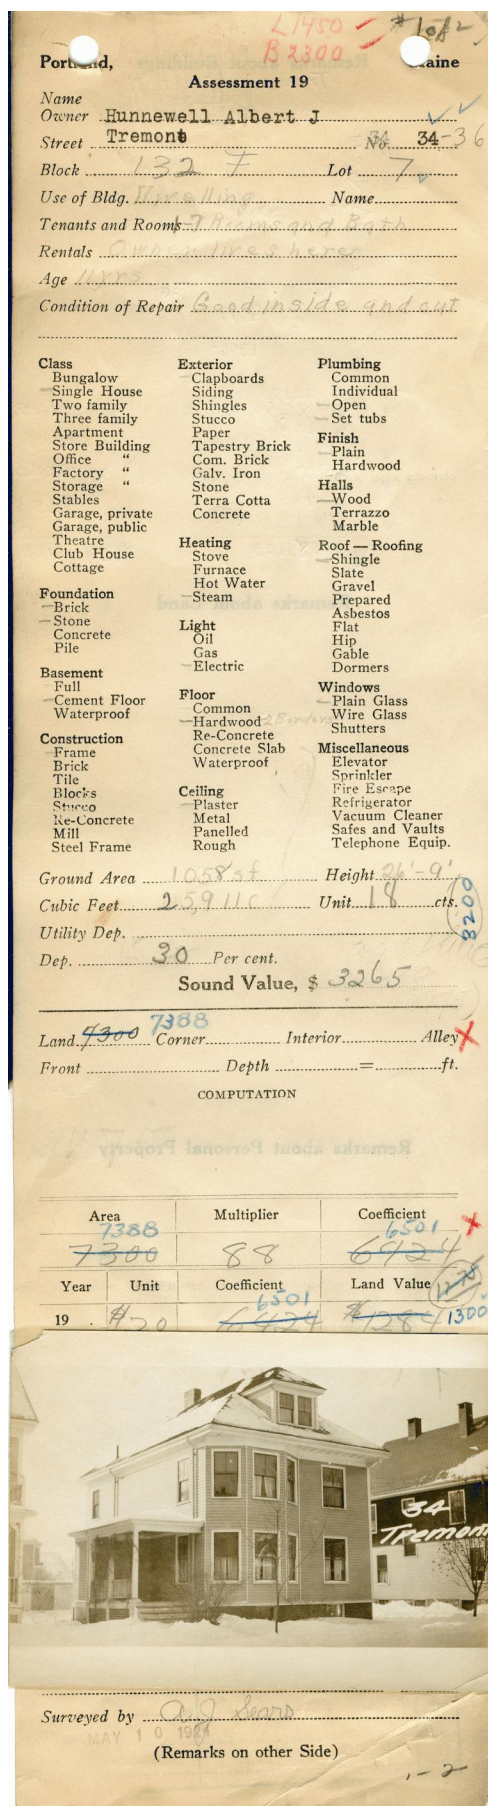 L 1450
B 2300
# 1 of 2
Portland, Maine
Assessment 19
Name
Owner Hunnewell Albert J
Street Tremont No. 34-36
Block 132 F Lot 7
Use of Bldg. Dwelling Name
Tenants and Rooms 1-7 Rooms and Bath
Rentals Owner lives here
Age 11 yrs
Condition of Repair Good inside and out
Class
Bungalow
Single House
Two family
Three family
Apartment
Store Building
Office "
Factory "
Storage "
Stables
Garage, private
Garage, public
Theatre
Club House
Cottage
Foundation
Brick
Stone
Concrete
Pile
Basement
Full
Cement Floor
Waterproof
Construction
Frame
Brick
Tile
Blocks
Stucco
Re-Concrete
Mill
Steel Frame
Exterior
Clapboards
Siding
Shingles
Stucco
Paper
Tapestry Brick
Com. Brick
Galv. Iron
Stone
Terra Cotta
Concrete
Heating
Stove
Furnace
Hot Water
Steam
Light
Oil
Gas
Electric
Floor
Common
Hardwood
Re-Concrete
Concrete Slab
Waterproof
Ceiling
Plaster
Metal
Panelled
Rough
Plumbing
Common
Individual
Open
Set tubs
Finish
Plain
Hardwood
Halls
Wood
Terrazzo
Marble
Roof — Roofing
Shingle
Slate
Gravel
Prepared
Asbestos
Flat
Hip
Gable
Dormers
Windows
Plain Glass
Wire Glass
Shutters
Miscellaneous
Elevator
Sprinkler
Fire Escape
Refrigerator
Vacuum Cleaner
Safes and Vaults
Telephone Equip.
Ground Area 1058 sf Height 26'-9"
Cubic Feet 25911 c Unit 18 cts.
3200
Utility Dep.
Dep. 30 Per cent.
Sound Value, $ 3265
7388
Land 7300 Corner Interior Alley X
Front Depth = ft.
COMPUTATION
Remarks about Personal Property
Area Multiplier Coefficient X
7388 6501
7300 88 6424
Year Unit Coefficient Land Value
6501
19 . $20 6424 $1284 1300
34
Tremont
Surveyed by A J Sears
MAY 10 1924
(Remarks on other Side)
1-2